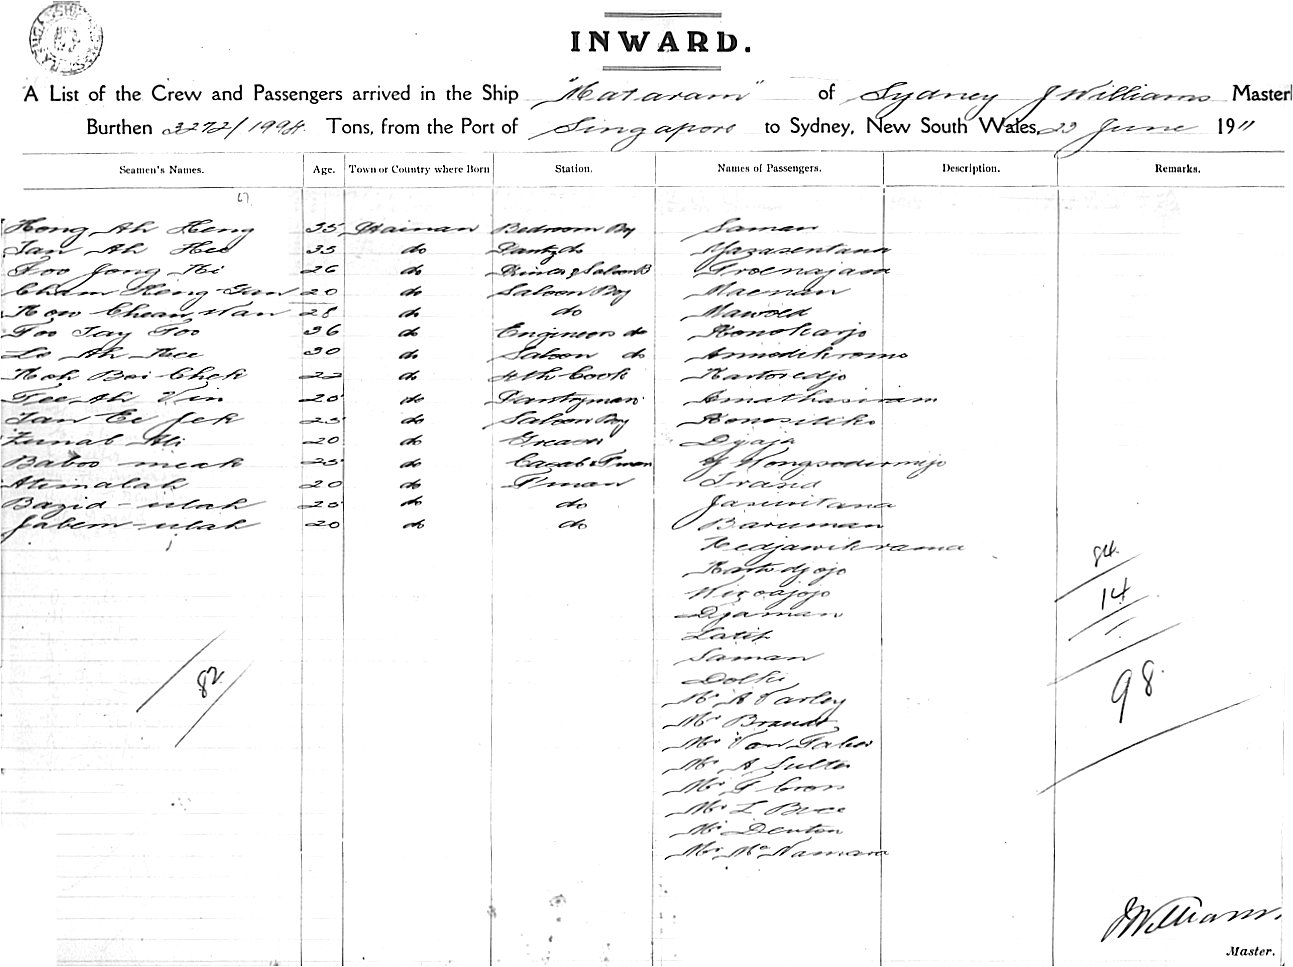 INWARD.
A List of the Crew and Passengers arrived in the Ship "Mataram" of Sydney J Williams Master
Burthen 3272/1998 Tons, from the Port of Singapore to Sydney, New South Wales, 23 June 1911
Seamen's Names. Age. Town or Country where Born Station. Names of Passengers. Description. Remarks.
67
Hong Ah Heng 35 Hainan Bedroom Boy Saman
Tan Ah Hee 35 do Pantry do Yazasentana
Foo Jong Ki 26 do Saloon B Troenajasa
Cham Keng Yan 20 do Saloon Boy Maenan
How Chean Wan 28 do do Mawoed
Foo Tay Foo 36 do Engineers do Konokarjo
Lo Ah Kee 30 do Saloon do Amodikromo
Koh Boi Chek 22 do 4th Cook Kartoredjo
Tee Ah Vin 25 do Pantryman Amathasiram
Tan Ee Jek 25 do Saloon Boy Konositiko
Zunab Ali 20 do Greaser Djaja
Baboo meah 25 do Cacab & F'man Wongsodermejo
Atimalah 20 do F'man Trasid
Bazid-ulah 25 do do Jaswitana
Jabem-ulah 20 do do Baruman
Kedjawikrama
84
Kartodjojo
Wiroajojo
14
Djaman
Latip
Saman
82
Dolki
98
Mr A Varley
Mr Brandt
Mr Von Faber
Mr A Sulter
Mr F Cross
Mr L Buce
Mr Denton
Mr McNamara
J Williams.
Master.